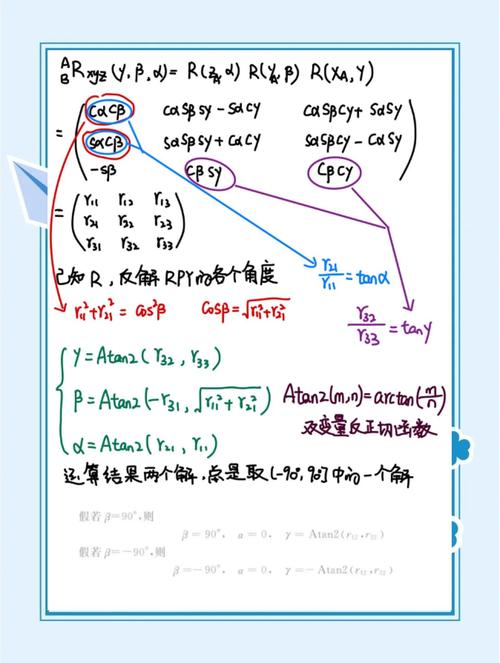 ᴬ_B R_xyz (γ, β, α) = R(Z_A, α) R(Y_A, β) R(X_A, γ)
= ( cαcβ cαsβsγ - sαcγ cαsβcγ + sαsγ
sαcβ sαsβsγ + cαcγ sαsβcγ - cαsγ
-sβ cβsγ cβcγ )
= ( r₁₁ r₁₂ r₁₃
r₂₁ r₂₂ r₂₃
r₃₁ r₃₂ r₃₃ )
已知R,反解RPY的各个角度
r₂₁/r₁₁ = tanα
r₁₁² + r₂₁² = cos²β cosβ = √(r₁₁² + r₂₁²)
r₃₂/r₃₃ = tanγ
γ = Atan2(r₃₂, r₃₃)
β = Atan2(-r₃₁, √(r₁₁² + r₂₁²))
α = Atan2(r₂₁, r₁₁)
Atan2(m,n) = arctan(m/n)
双变量反正切函数
运算结果两个解,总是取[-90°, 90°]中的一个解
假若β=90°,则
β = 90°, α = 0, γ = Atan2(r₁₂, r₂₂)
假若β=-90°,则
β = -90°, α = 0, γ = -Atan2(r₁₂, r₂₂)